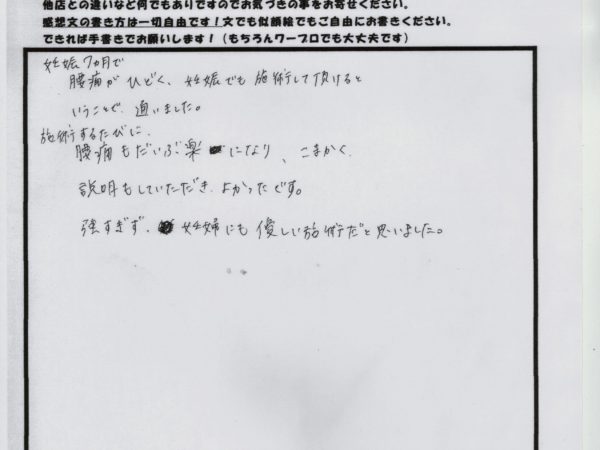 他店との違いなど何でもありですのでお気づきの事をお寄せください。
感想文の書き方は一切自由です！文でも似顔絵でもご自由にお書きください。
できれば手書きでお願いします！（もちろんワープロでも大丈夫です）
妊娠7カ月で
腰痛がひどく、妊娠でも施術して頂けると
いうことで、通いました。
施術するたびに、
腰痛もだいぶ楽になり、こまかく
説明もしていただき、よかったです。
強すぎず、妊婦にも優しい施術だと思いました。